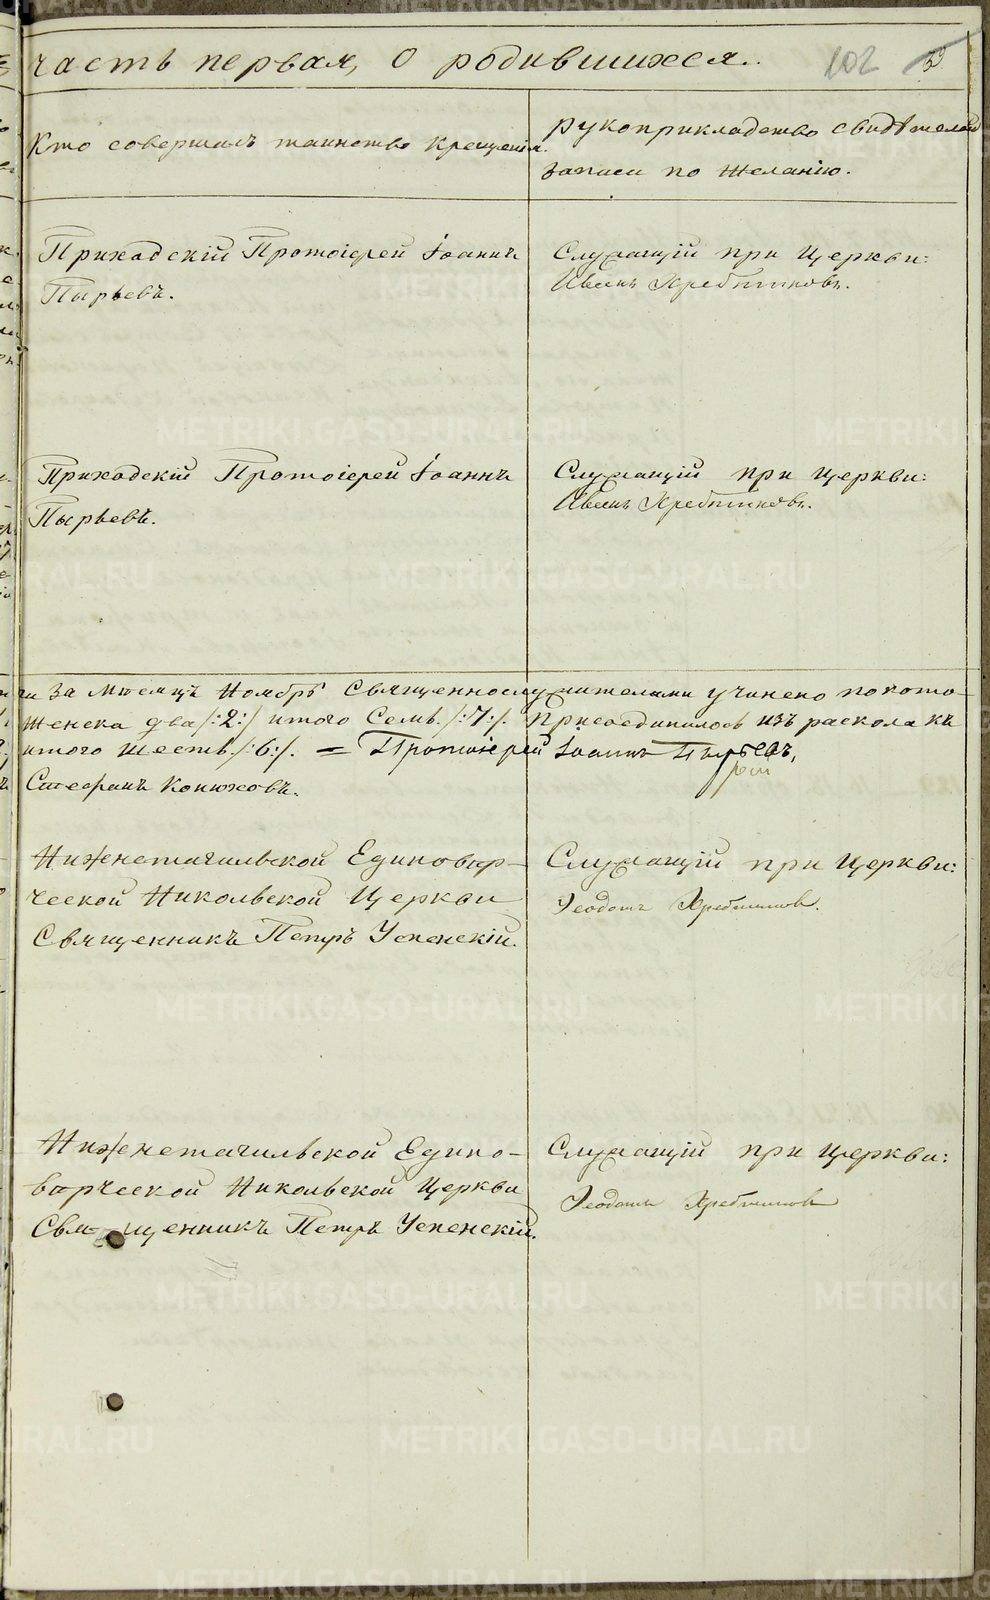 часть первая, О родившихся. 102
Кто совершалъ таинство крещенія.
Рукоприкладство свидѣтелей
записи по желанію.
Приходскій Протоіерей Іоаннъ
Пырьевъ.
Служащій при Церкви:
Иванъ Хребтиковъ.
Приходскій Протоіерей Іоаннъ
Пырьевъ.
Служащій при Церкви:
Иванъ Хребтиковъ.
за мѣсяцъ Ноябрь Священнослужителями учинено по кото-
женска два /:2:/ итого Семь /:7:/. Присоединилось изъ раскола къ
итого шесть /:6:/. = Протоіерей Іоаннъ Пырьевъ,
Стефанъ Конюховъ.
Нижнетагильской Единовѣр-
ческой Никольской Церкви
Священникъ Петръ Успенскій.
Служащій при Церкви:
Ѳеодотъ Хребтиковъ.
Нижнетагильской Едино-
вѣрческой Никольской Церкви
Священникъ Петръ Успенскій.
Служащій при Церкви:
Ѳеодотъ Хребтиковъ
METRIKI.GASO-URAL.RU